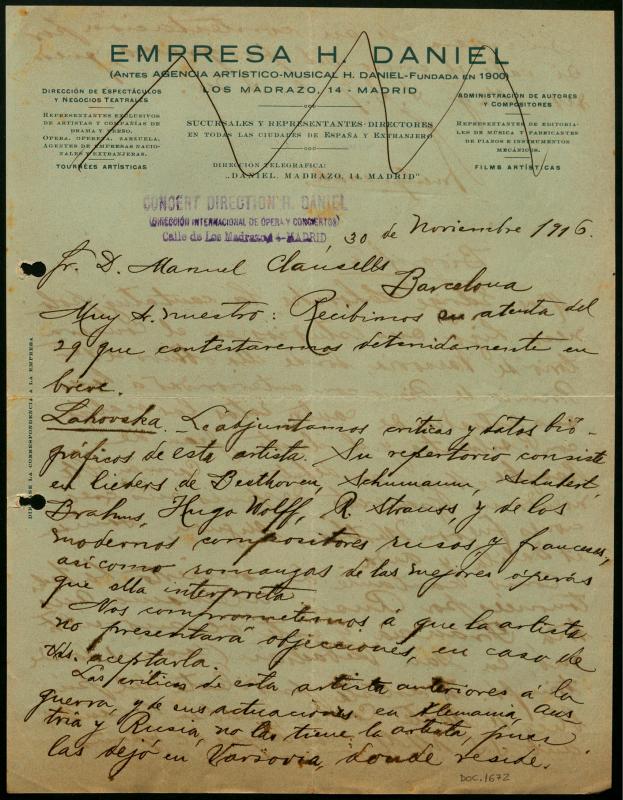 EMPRESA H. DANIEL
(ANTES AGENCIA ARTÍSTICO-MUSICAL H. DANIEL-FUNDADA EN 1900)
LOS MADRAZO, 14 - MADRID
DIRECCIÓN DE ESPECTÁCULOS
Y NEGOCIOS TEATRALES
REPRESENTANTES EXCLUSIVOS
DE ARTISTAS Y COMPAÑÍAS DE
DRAMA Y VERSO.
OPERA, OPERETA, ZARZUELA,
AGENTES DE EMPRESAS NACIO-
NALES Y EXTRANJERAS.
TOURNÉES ARTÍSTICAS
SUCURSALES Y REPRESENTANTES-DIRECTORES
EN TODAS LAS CIUDADES DE ESPAÑA Y EXTRANJERO
DIRECCION TELEGRAFICA:
„DANIEL. MADRAZO, 14. MADRID"
ADMINISTRACIÓN DE AUTORES
Y COMPOSITORES
REPRESENTANTES DE EDITORIA-
LES DE MÚSICA Y FABRICANTES
DE PIANOS E INSTRUMENTOS
MECÁNICOS.
FILMS ARTÍSTICAS
CONCERT DIRECTION H. DANIEL
(DIRECCIÓN INTERNACIONAL DE OPERA Y CONCIERTOS)
Calle de Los Madrazo - MADRID
, 30 de Noviembre 1916.
Sr. D. Manuel Clausells
Barcelona
Muy S. nuestro: Recibimos su atenta del
29 que contestaremos detenidamente en
breve.
Lahovska. - Le adjuntamos críticas y datos bio-
gráficos de esta artista. Su repertorio consiste
en lieders de Beethoven, Schumann, Schubert,
Brahms, Hugo Wolff, R. Strauss, y de los
modernos compositores rusos, y franceses,
así como romanzas de las mejores óperas
que ella interpreta.
Nos comprometemos á que la artista
no presentará objecciones, en caso de
Vds. aceptarla.
Las críticas de esta artista anteriores á la
guerra, y de sus actuaciones en Alemania, Aus
tria y Rusia, no las tiene la artista, pues
las dejó en Varsovia, donde reside.
DE LA CORRESPONDENCIA A LA EMPRESA
DOC. 1672